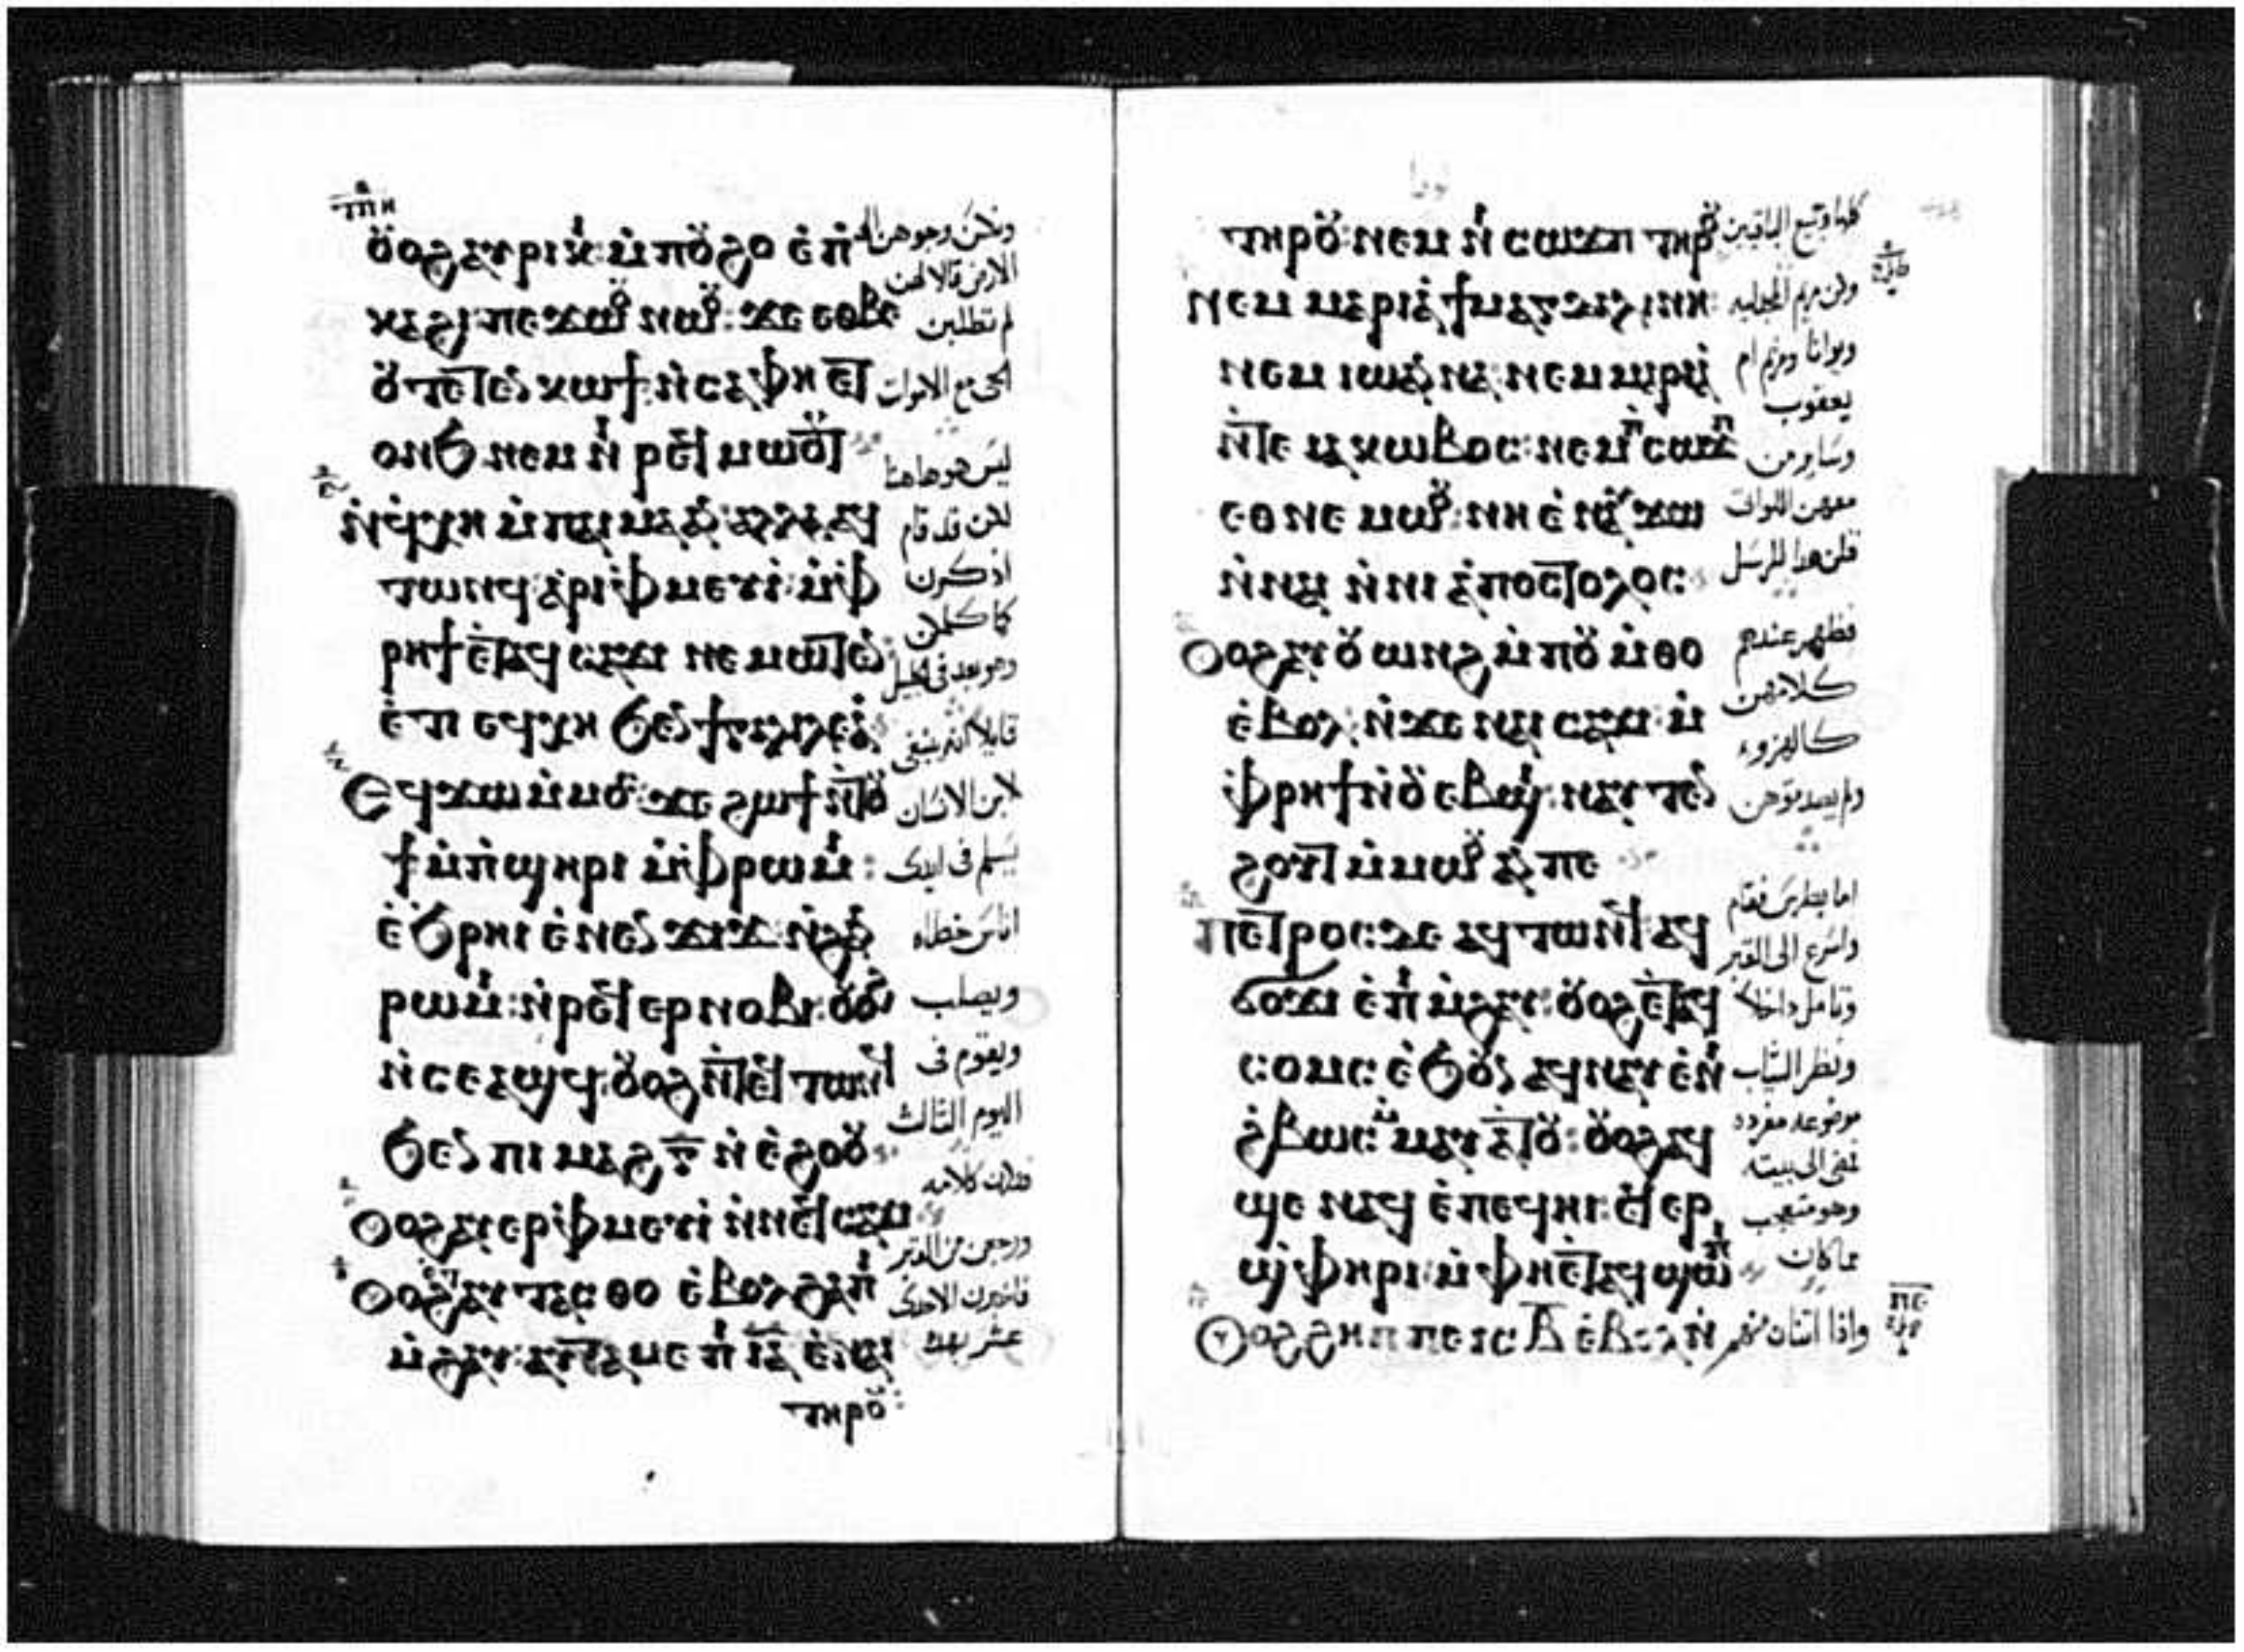 ⲧⲡⲏ
ⲟ̈ⲟϩ ⲁⲩⲣⲓⲕⲓ: ⲙ̇ⲡⲟ̈ϩⲟ ⲉ̇ⲡⲓ
ⲕⲁϩⲓ: ⲡⲉϫⲱⲟ̈ ⲛⲱⲟ̈: ϫⲉ ⲉⲑⲃⲉ
ⲟ̈ ⲧⲉⲧⲉⲛ ⲕⲱϯ: ⲛ̇ⲥⲁ ⲫⲏ ⲉⲧ
ⲟⲛϧ ⲛⲉⲙ ⲛⲓ ⲣⲉϥⲙⲱⲟ̈ⲧ
ⲛ̇ϥⲭⲏ ⲙ̇ⲡⲁⲓ ⲙⲁ ⲁⲛ: ⲁⲗⲗⲁ ⲁϥ
ⲧⲱⲛϥ: ⲁⲣⲓⲫⲙⲉⲩⲓ: ⲙ̇ⲫ
ⲣⲏϯ ⲉ̇ⲧⲁϥ ⲥⲁϫⲓ ⲛⲉⲙⲱⲧⲉⲛ:
ⲉ̇ⲧⲓ ⲉϥⲭⲏ ϧⲉⲛ ϯⲅⲁⲗⲓⲗⲉⲁ:
ⲉϥϫⲱ ⲙ̇ⲙⲟⲥ: ϫⲉ ϩⲱϯ ⲛ̇ⲧⲟ̈
ϯ ⲙ̇ⲡϣⲏⲣⲓ ⲙ̇ⲫⲣⲱⲙⲓ:
ⲉ̇ϧⲣⲏⲓ ⲉ̇ⲛⲉⲛ ϫⲓϫ: ⲛ̇ϩⲁⲛ
ⲣⲱⲙⲓ: ⲛ̇ⲣⲉϥⲉⲣⲛⲟⲃⲓ: ⲟ̈ⲟϩ
ⲛ̇ⲥⲉⲁϣϥ: ⲟ̈ⲟϩ ⲛ̇ⲧⲉϥ ⲧⲱⲛϥ
ϧⲉⲛ ⲡⲓ ⲙⲁϩ ⲅ̅ ⲛ̇ⲉ̇ϩⲟⲟ̈
ⲟⲟϩ ⲁⲩⲉⲣⲫⲙⲉⲩⲓ ⲛ̇ⲛⲉϥⲥⲁϫⲓ
ⲟⲟϩ ⲉⲧⲁⲩ ⲧⲁⲥⲑⲟ ⲉ̇ⲃⲟⲗ ϩⲁ ⲡⲓ
ⲙ̇ϩⲁⲩ: ⲁⲩⲧⲁⲙⲉ ⲡⲓ ⲓ̅ⲁ̅ ⲉ̇ⲛⲁⲓ
ⲧⲏⲣⲟ̈:
الارض قالا لهن
لم تطلبن
الحي مع الاموات
ليس هو هاهنا
لكن قد قام
اذكرن
كما كلمكن
وهو بعد في الجليل
لابن الانسان
اناس خطاه
ويصلب
ويقوم في
اليوم الثالث
ورجعن من القبر
فاخبرن الاحدى
عشر بهذا
ⲧⲏⲣⲟ̈: ⲛⲉⲙ ⲛ̇ ⲥⲱϫⲡ ⲧⲏⲣⲟ̈
ⲛⲉⲙ ⲙⲁⲣⲓⲁ ϯⲙⲁⲅⲇⲁⲗⲓⲛⲏ:
ⲛⲉⲙ ⲓⲱⲁⲛⲛⲁ: ⲛⲉⲙ ⲙⲁⲣⲓⲁ
ⲛ̇ⲧⲉ ⲓⲁⲕⲱⲃⲟⲥ: ⲛⲉⲙ ⲡ ⲥⲱϫⲡ
ⲉⲑⲛⲉⲙⲱⲟ̈: ⲛⲏ ⲉ̇ⲛⲁⲩ ϫⲱ
ⲛ̇ⲛⲁⲓ ⲛ̇ⲛⲓ ⲁ̇ⲡⲟⲥⲧⲟⲗⲟⲥ:
ⲟⲟϩ ⲁⲩⲟ̈ⲱⲛϩ ⲙ̇ⲡⲟ̈ ⲙ̇ⲑⲟ
ⲉ̇ⲃⲟⲗ: ⲛ̇ϫⲉ ⲛⲁⲓ ⲥⲁϫⲓ: ⲙ̇
ⲫⲣⲏϯ ⲛ̇ⲟ̈ⲉⲃϣⲓ: ⲛⲁⲩ ⲧⲉⲛ
ϩⲟⲩⲧ ⲙ̇ⲙⲱⲟ̈ ⲁⲛ ⲡⲉ
ⲡⲉⲧⲣⲟⲥ: ⲇⲉ ⲁϥ ⲧⲱⲛϥ ⲁϥ
ϭⲟϫⲓ ⲉ̇ⲡⲓ ⲙ̇ϩⲁⲩ: ⲟ̈ⲟϩ ⲉ̇ⲧⲁϥ
ⲥⲟⲙⲥ ⲉ̇ϧⲟ̈ⲛ ⲁϥⲛⲁⲩ ⲉ̇ⲛⲓ
ϩ̇ⲃⲱⲥ: ⲙⲙⲁⲩ ⲁ̇ⲧⲟ̈: ⲟ̈ⲟϩ ⲁϥ
ϣⲉ ⲛⲁϥ ⲉ̇ⲡⲉϥⲏⲓ: ⲉϥⲉⲣ
ϣⲫⲏⲣⲓ: ⲙ̇ⲫⲏ ⲉ̇ⲧⲁϥ ϣⲱⲡⲓ
ⲟⲟϩ ϩⲏⲡⲡⲉ ⲓⲥ ⲃ̅ ⲉ̇ⲃⲟⲗ ⲛ̇
كلها وجميع الباقيين
وكن مريم المجدليه
ويوانا ومريم ام
يعقوب
وساير من
معهن اللواتي
قلن هذا للرسل
فظهر عندهم
كلامهن
كالهزوء
ولم يصدقوهن
اما بطرس فقام
واسرع الى القبر
وتامل داخلا
ونظر الثياب
موضوعه مفرده
فمضى الى بيته
وهو متعجب
مما كان
واذا اثنان منهم
ⲡⲉ